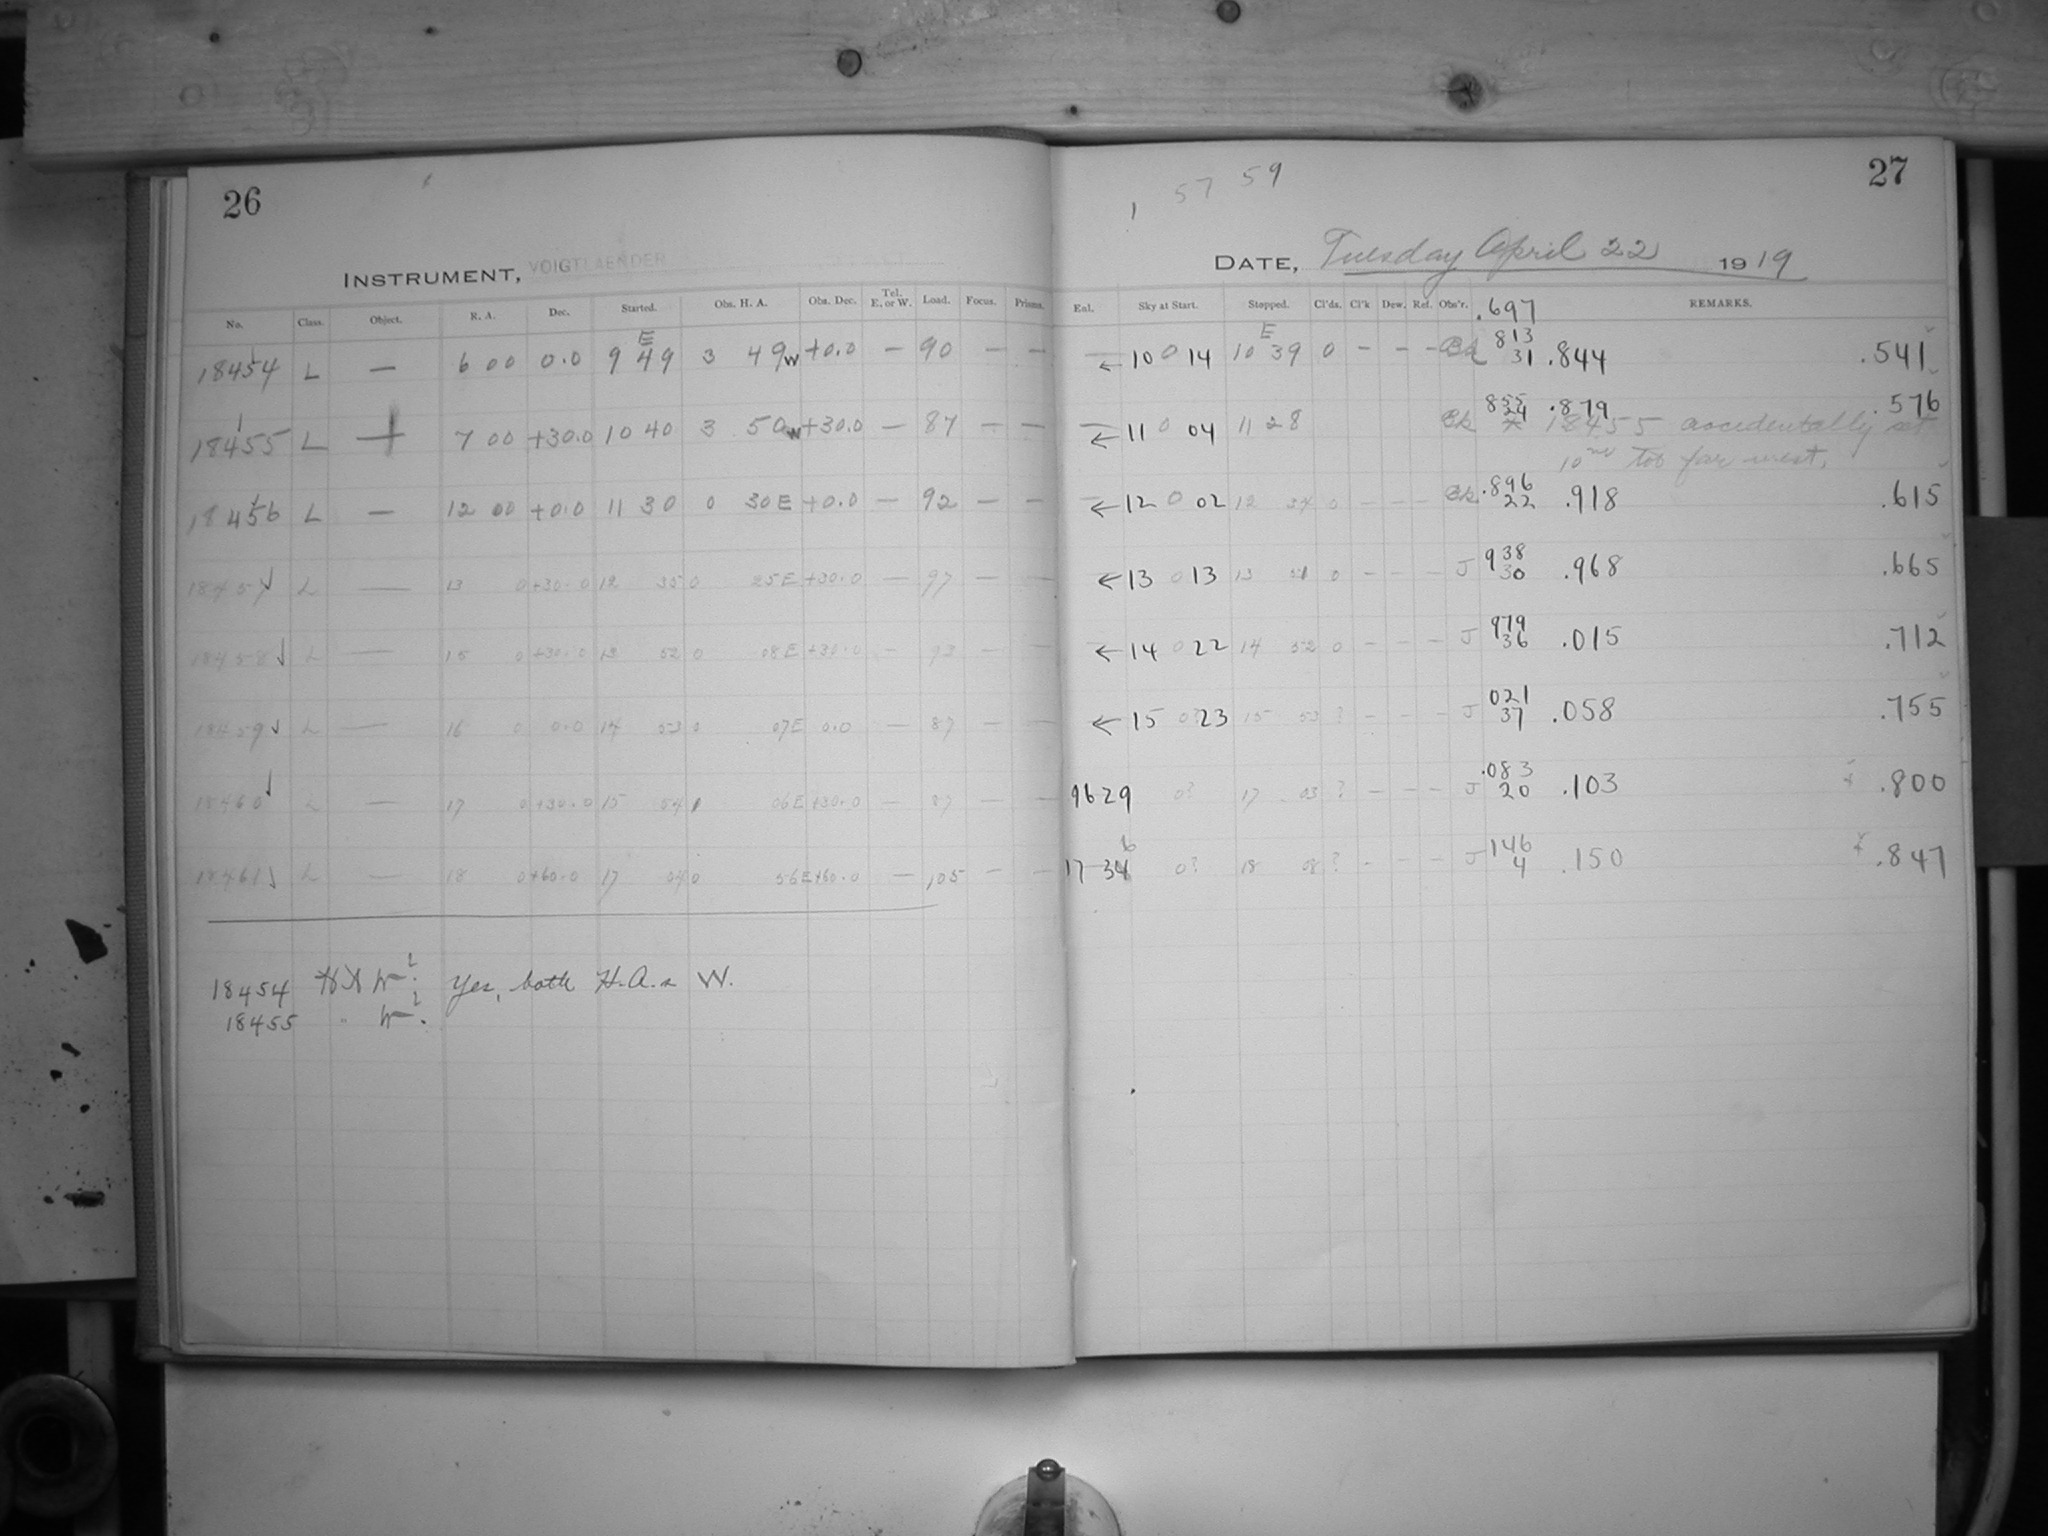 26
INSTRUMENT, VOIGTLAENDER
No. Class. Object. R. A. Dec. Started. Obs. H. A. Obs. Dec. Tel. E. or W. Load. Focus. Prisms.
18454 L — 6 00 0.0 9 49 E 3 49 W +0.0 — 90 — —
18455 L — 7 00 +30.0 10 40 3 50 W +30.0 — 87 — —
18456 L — 12 00 +0.0 11 30 0 30 E +0.0 — 92 — —
18457 L — 13 0 +30.0 12 35 0 25 E +30.0 — 97 — —
18458 L — 15 0 +30.0 13 52 0 08 E +30.0 — 93 — —
18459 L — 16 0 0.0 14 53 0 07 E 0.0 — 87 — —
18460 L — 17 0 +30.0 15 54 1 06 E +30.0 — 87 — —
18461 L — 18 0 +60.0 17 04 0 56 E +60.0 — 105 — —
18454 HA W? Yes, both H.A.s W.
18455 " W?
1 57 59
27
DATE, Tuesday April 22 1919
Enl. Sky at Start. Stopped. Cl'ds. Cl'k Dew. Ref. Obs'r. REMARKS.
.697
← 10 0 14 10 39 E 0 — — — Bk 813 31 .844 .541
← 11 0 04 11 28 Bk 855 24 .879 .576
* 18455 accidentally set
10 too far west.
← 12 0 02 12 34 0 — — — Bk .896 22 .918 .615
← 13 0 13 13 51 0 — — — J 938 30 .968 .665
← 14 0 22 14 52 0 — — — J 979 36 .015 .712
← 15 0? 23 15 53 ? — — — J 021 37 .058 .755
9629 0? 17 03 ? — — — J .083 20 .103 .800
17 34 6 0? 18 08 ? — — — J 146 4 .150 .847